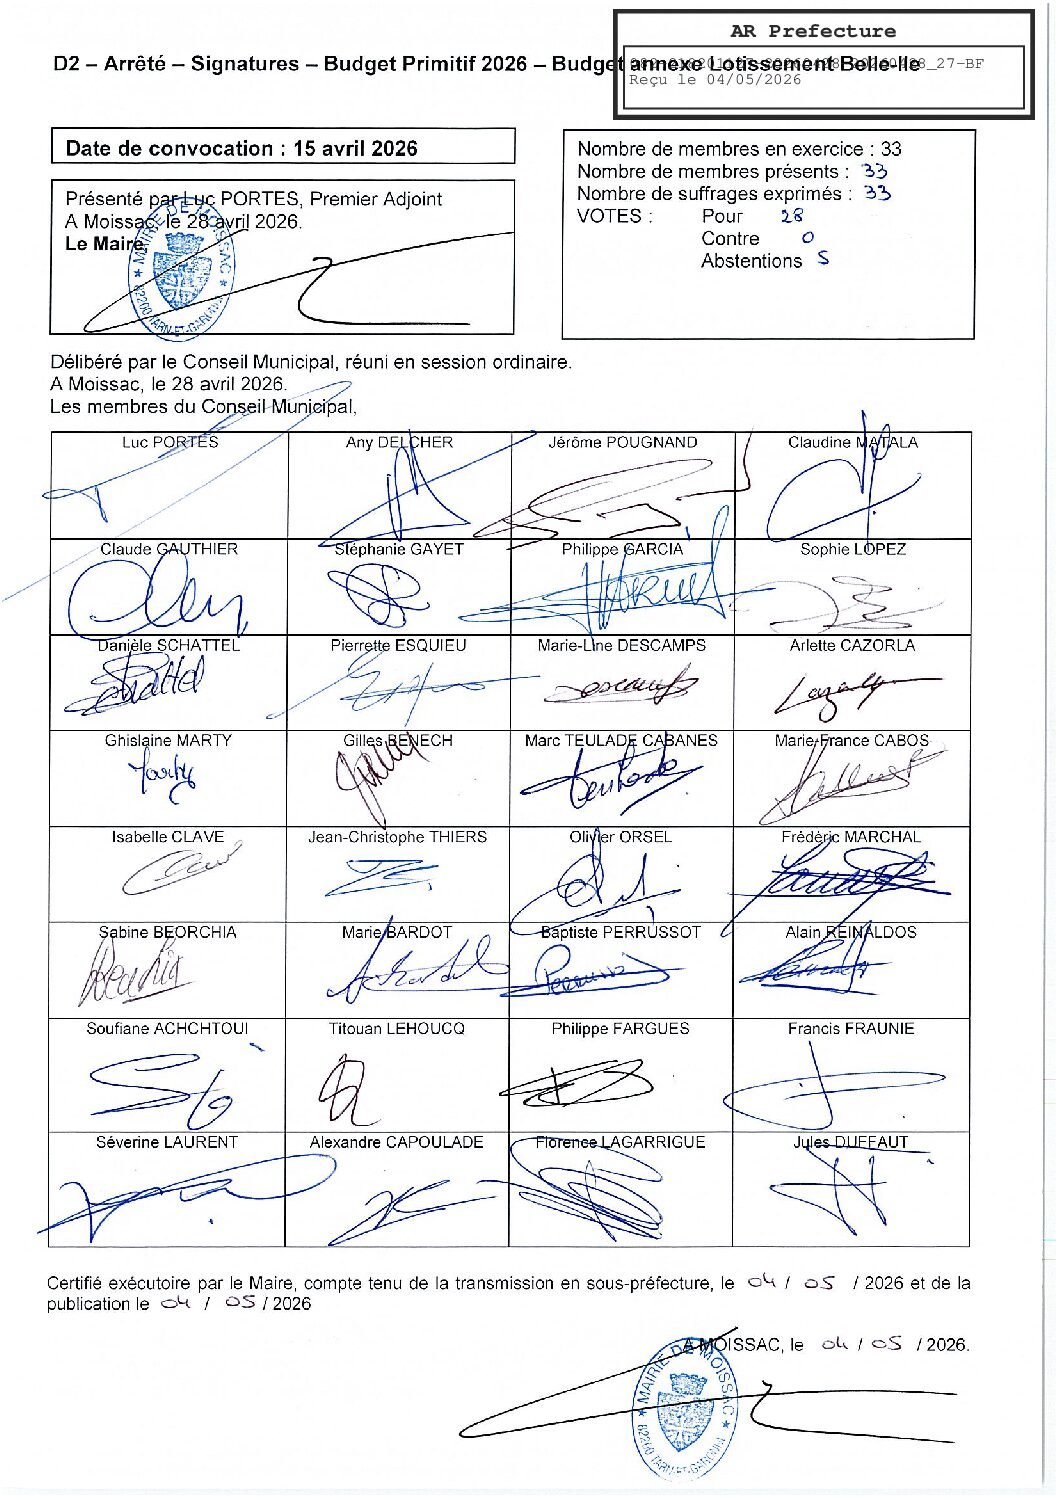 AR Prefecture
D2 – Arrêté – Signatures – Budget Primitif 2026 – Budget annexe Lotissement Belle-Ile
Reçu le 04/05/2026
Date de convocation : 15 avril 2026
Présenté par Luc PORTES, Premier Adjoint
A Moissac, le 28 avril 2026.
Le Maire,
MAIRIE DE MOISSAC
82200 TARN-ET-GARONNE
Nombre de membres en exercice : 33
Nombre de membres présents : 33
Nombre de suffrages exprimés : 33
VOTES : Pour 28
Contre 0
Abstentions 5
Délibéré par le Conseil Municipal, réuni en session ordinaire.
A Moissac, le 28 avril 2026.
Les membres du Conseil Municipal,
Luc PORTES Any DELCHER Jérôme POUGNAND Claudine MATALA
Claude GAUTHIER Stéphanie GAYET Philippe GARCIA Sophie LOPEZ
Danièle SCHATTEL Pierrette ESQUIEU Marie-Line DESCAMPS Arlette CAZORLA
Ghislaine MARTY Gilles BENECH Marc TEULADE CABANES Marie-France CABOS
Isabelle CLAVE Jean-Christophe THIERS Olivier ORSEL Frédéric MARCHAL
Sabine BEORCHIA Marie BARDOT Baptiste PERRUSSOT Alain REINALDOS
Soufiane ACHCHTOUI Titouan LEHOUCQ Philippe FARGUES Francis FRAUNIE
Séverine LAURENT Alexandre CAPOULADE Florence LAGARRIGUE Jules DUFFAUT
Certifié exécutoire par le Maire, compte tenu de la transmission en sous-préfecture, le 04 / 05 / 2026 et de la
publication le 04 / 05 / 2026
A MOISSAC, le 04 / 05 / 2026.
MAIRIE DE MOISSAC
82200 TARN-ET-GARONNE